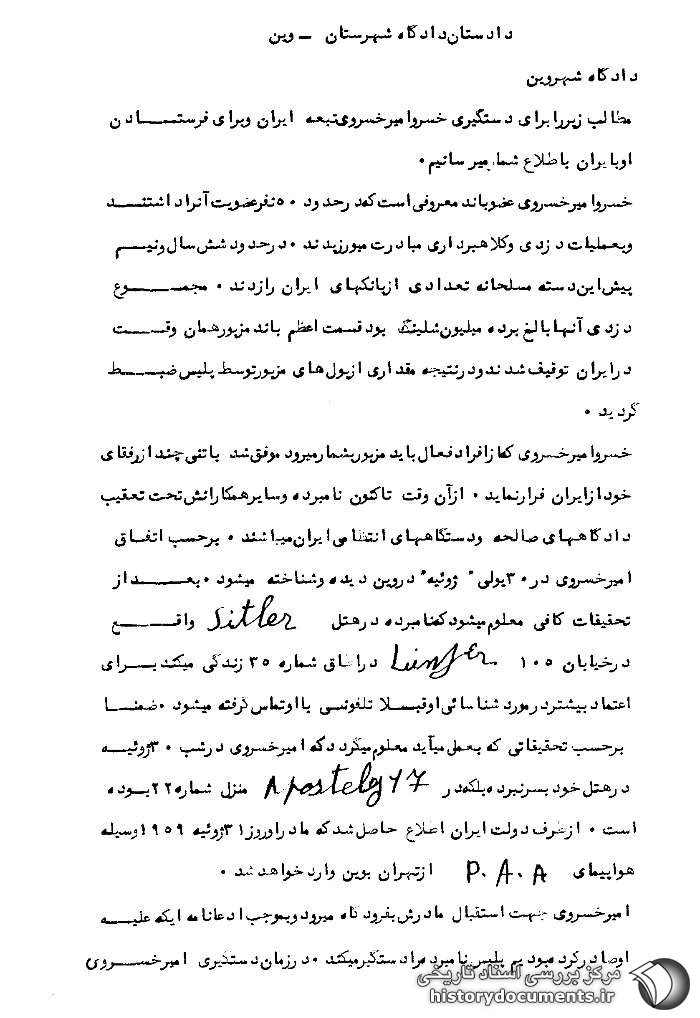 دادستان دادگاه شهرستان ــ وین
دادگاه شهروین
مطالب زیر را برای دستگیری خسروامیرخسروی تبعه ایران وبرای فرستادن
اوبایران باطلاع شما میرسانیم ۰
خسروامیرخسروی عضوباند معروفی است که درحدود ۵۰ نفرعضویت آنرا داشتند
وبعملیات دزدی وکلاهبرداری مبادرت میورزیدند ۰ درحدود شش سال ونیم
پیش این دسته مسلحانه تعدادی ازبانکهای ایران رازدند ۰ مجموع
دزدی آنهابالغ برده میلیون شلینگ بودقسمت اعظم باند مزبورهمان وقت
درایران توقیف شدندودرنتیجه مقداری ازپول های مزبورتوسط پلیس ضبط
گردید ۰
خسروامیرخسروی که ازافراد فعال باند مزبوربشمارمیرود موفق شد باتنی چندازرفقای
خودازایران فرارنماید ۰ ازآن وقت تاکنون نامبرده وسایرهمکارانش تحت تعقیب
دادگاههای صالحه ودستگاههای انتظامی ایران میباشند ۰ برحسب اتفاق
امیرخسروی در ۳۰ یولی " ژوئیه " دروین دیده وشناخته میشود ۰ بعداز
تحقیقات کافی معلوم میشودکه نامبرده درهتل Sitler واقع
درخیابان ۱۰۵ دراطاق شماره ۳۵ زندگی میکند برای
اعتماد بیشتردرمورد شناسائی اوقبلا تلفونی بااوتماس گرفته میشود ۰ ضمنا
برحسب تحقیقاتی که بعمل میآید معلوم میگردد که امیرخسروی درشب ۳۰ ژوئیه
درهتل خود بسرنبرده بلکه در Apostelg 17 منزل شماره ۲۲ بوده
است ۰ ازطرف دولت ایران اطلاع حاصل شدکه مادراوروز ۳۱ ژوئیه ۱۹۵۹ وسیله
هواپیمای P.A.A ازتهران بوین وارد خواهد شد ۰
امیرخسروی جهت استقبال مادرش بفرودگاه میرود وبموجب ادعانامه ایکه علیه
اوصادرکرده بودیم پلیس نامبرده رادستگیرمیکند ۰ درزمان دستگیری امیرخسروی
مرکز بررسی اسناد تاریخی
historydocuments.ir